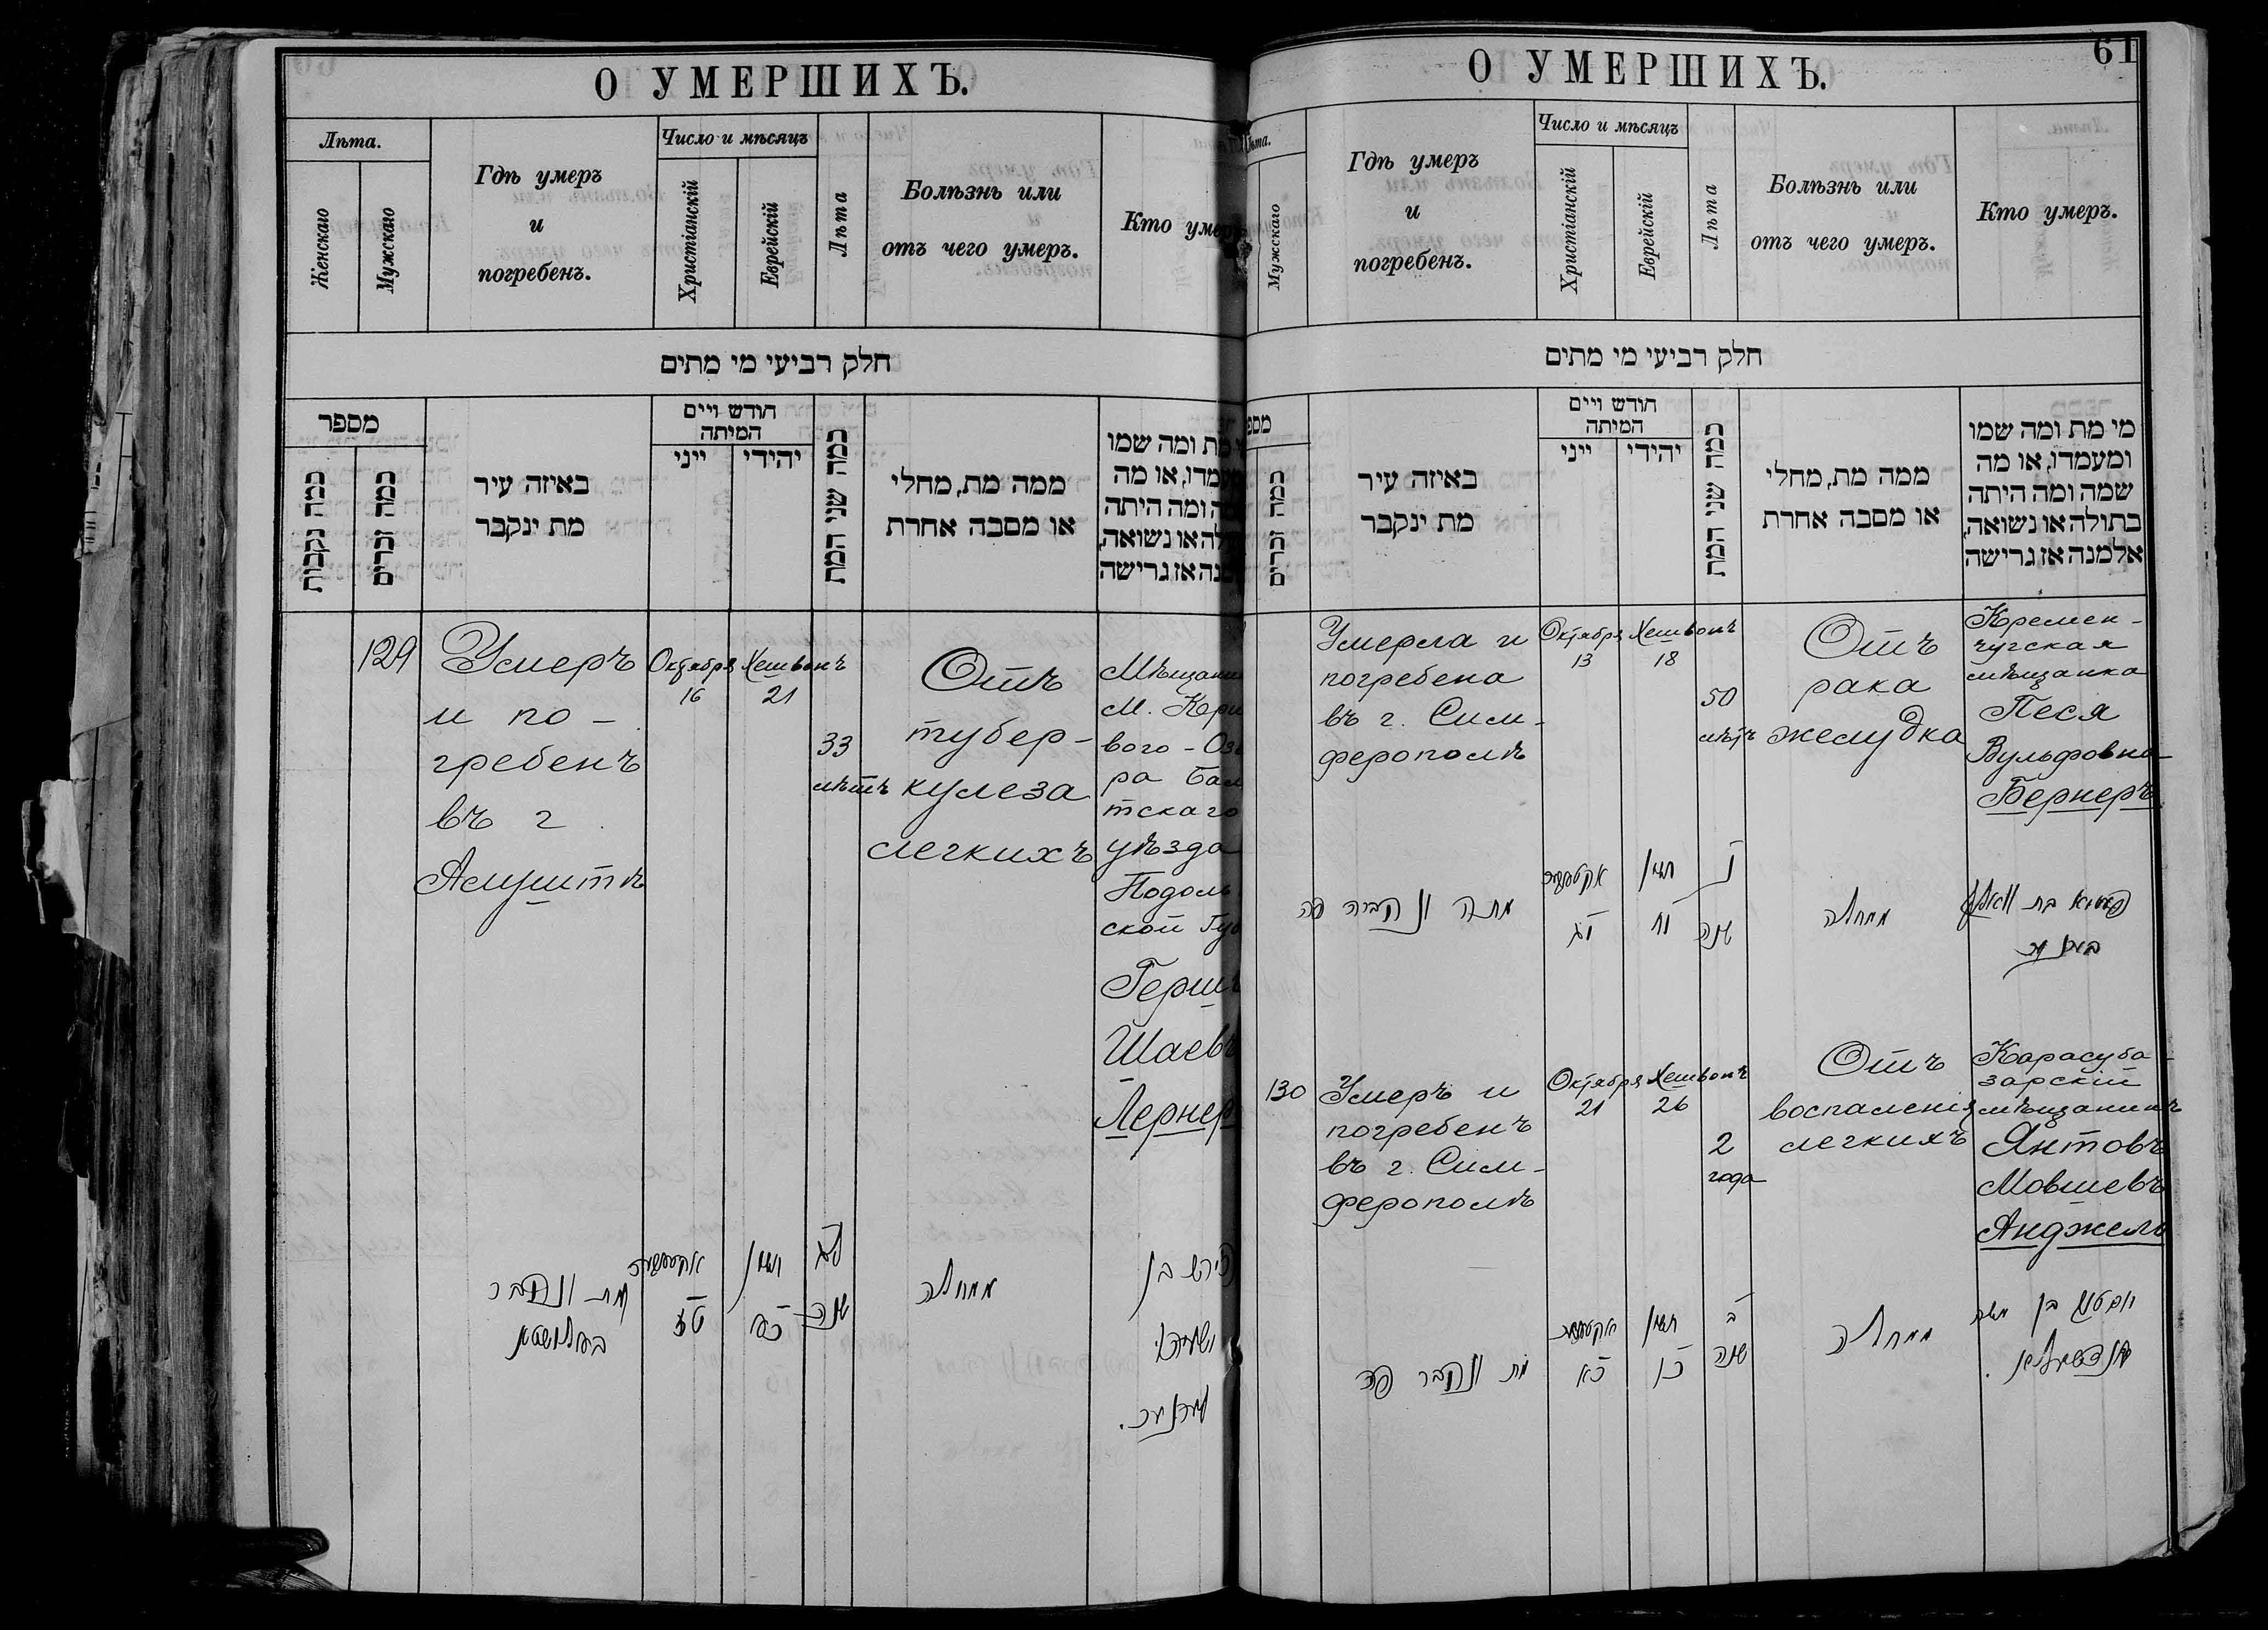 О УМЕРШИХЪ.
Лѣта.
Женскаго
Мужскаго
Гдѣ умеръ
и
погребенъ.
Число и мѣсяцъ
Христіанскій
Еврейскій
Лѣта
Болѣзнь или
отъ чего умеръ.
Кто умер
חלק רביעי מי מתים
מספר
כמה נקבות
כמה זכרים
באיזה עיר
מת ינקבר
חודש ויים
המיתה
ייני
יהידי
כמה שני המת
ממה מת, מחלי
או מסבה אחרת
מת ומה שמו
עמדו, או מה
ה ומה היתה
לה או נשואה,
נה אז גרישה
129
Умеръ
и по-
гребенъ
въ г.
Алуштѣ
Октября
16
Хешвонъ
21
33
лѣтъ
Отъ
тубер-
кулеза
легкихъ
Мѣщани
м. Кри
вого-Озе
ра Бал
тскаго
уѣзда
Подоль
ской Гу
Герш
Шаев
Лернер
מת ונקבר
באלושטא
טז
חשון
כא
לג
שנה
ממחלה
הירש בן
לערנער.
61
О УМЕРШИХЪ.
ѣта.
Мужскаго
Гдѣ умеръ
и
погребенъ.
Число и мѣсяцъ
Христіанскій
Еврейскій
Лѣта
Болѣзнь или
отъ чего умеръ.
Кто умеръ.
חלק רביעי מי מתים
מספ
כמה זכרים
באיזה עיר
מת ינקבר
חודש ויים
המיתה
ייני
יהידי
כמה שני המת
ממה מת, מחלי
או מסבה אחרת
מי מת ומה שמו
ומעמדו, או מה
שמה ומה היתה
בתולה או נשואה,
אלמנה אז גרישה
Умерла и
погребена
въ г. Сим-
ферополѣ
Октября
13
Хешвонъ
18
50
лѣтъ
Отъ
рака
желудка
Кремен-
чугская
мѣщанка
Песя
Вульфовна
Бернеръ
מתה ונקברה פה
יג
חשון
יח
נ
שנה
ממחלה
בערנער
130
Умеръ и
погребенъ
въ г. Сим-
ферополѣ
Октября
21
Хешвонъ
26
2
года
Отъ
воспаленія
легкихъ
Карасуба-
зарскій
мѣщанинъ
Янтовъ
Мовшевъ
Анджель
מת ונקבר פה
כא
חשון
כו
ב
שנה
ממחלה
יומטוב בן משה